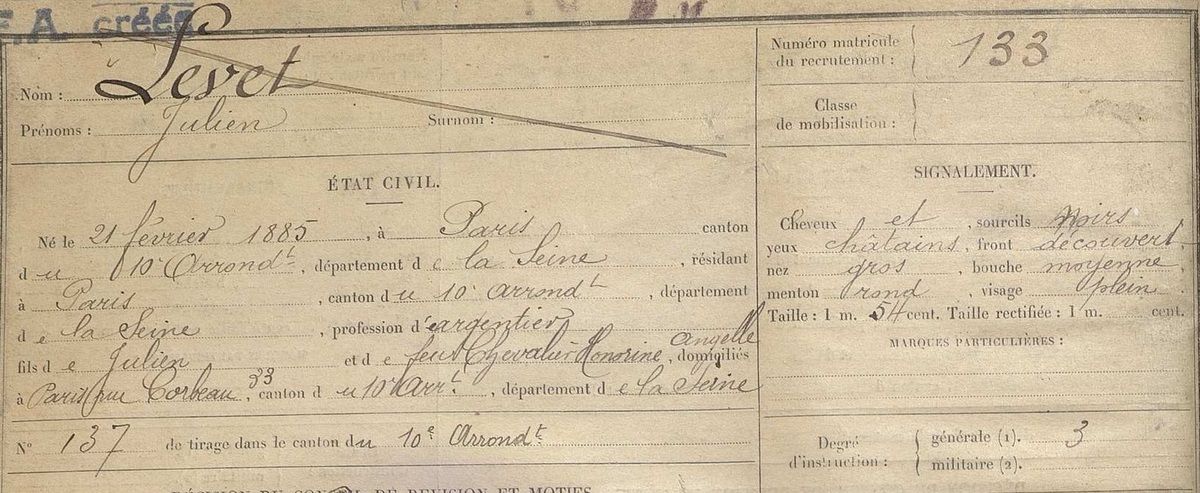 F.A. créée
Nom : Levet
Prénoms : Julien Surnom :
ÉTAT CIVIL.
Né le 21 février 1885, à Paris canton
du 10e Arrondt, département de la Seine, résidant
à Paris, canton du 10e arrondt, département
de la Seine, profession d'argentier
fils de Julien et de feue Chevalier Honorine Angelle, domiciliés
à Paris, rue Corbeau 33, canton du 10e Arrt, département de la Seine
N° 137 de tirage dans le canton du 10e Arrondt
DÉCISION DU CONSEIL DE REVISION ET MOTIFS
Numéro matricule
du recrutement : 133
Classe
de mobilisation :
SIGNALEMENT.
Cheveux et, sourcils noirs
yeux châtains, front découvert
nez gros, bouche moyenne,
menton rond, visage plein
Taille : 1 m. 54 cent. Taille rectifiée : 1 m. cent.
MARQUES PARTICULIÈRES :
Degré
d'instruction :
générale (1). 3
militaire (2).